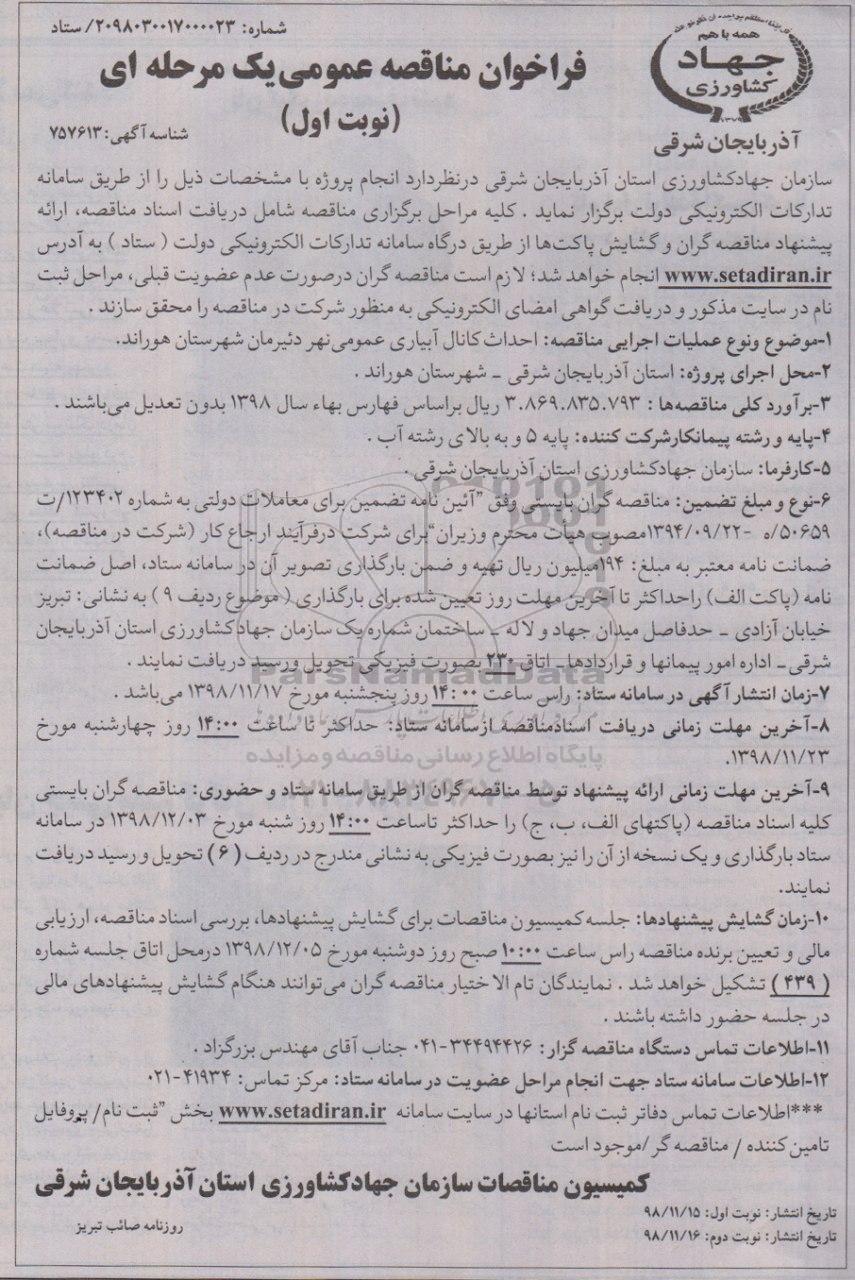 شماره: ۲۰۹۸۰۳۰۰۱۷۰۰۰۰۲۳/ ستاد
همه با هم
جهاد
کشاورزی
۱۳۷۹
آذربایجان شرقی
فراخوان مناقصه عمومی یک مرحله ای
(نوبت اول)
شناسه آگهی: ۷۵۷۶۱۳
سازمان جهادکشاورزی استان آذربایجان شرقی درنظردارد انجام پروژه با مشخصات ذیل را از طریق سامانه
تدارکات الکترونیکی دولت برگزار نماید . کلیه مراحل برگزاری مناقصه شامل دریافت اسناد مناقصه، ارائه
پیشنهاد مناقصه گران و گشایش پاکت‌ها از طریق درگاه سامانه تدارکات الکترونیکی دولت ( ستاد ) به آدرس
www.setadiran.ir انجام خواهد شد؛ لازم است مناقصه گران درصورت عدم عضویت قبلی، مراحل ثبت
نام در سایت مذکور و دریافت گواهی امضای الکترونیکی به منظور شرکت در مناقصه را محقق سازند .
۱-موضوع ونوع عملیات اجرایی مناقصه: احداث کانال آبیاری عمومی نهر دئیرمان شهرستان هوراند.
۲-محل اجرای پروژه: استان آذربایجان شرقی - شهرستان هوراند .
۳-برآورد کلی مناقصه‌ها : ۳.۸۶۹.۸۳۵.۷۹۳ ریال براساس فهارس بهاء سال ۱۳۹۸ بدون تعدیل می‌باشند .
۴-پایه و رشته پیمانکارشرکت کننده: پایه ۵ و به بالای رشته آب .
۵-کارفرما: سازمان جهادکشاورزی استان آذربایجان شرقی .
۶-نوع و مبلغ تضمین: مناقصه گران بایستی وفق "آئین نامه تضمین برای معاملات دولتی به شماره ۱۲۳۴۰۲/ت
۵۰۶۵۹/ه -۱۳۹۴/۰۹/۲۲مصوب هیأت محترم وزیران"برای شرکت درفرآیند ارجاع کار (شرکت در مناقصه)،
ضمانت نامه معتبر به مبلغ: ۱۹۴میلیون ریال تهیه و ضمن بارگذاری تصویر آن در سامانه ستاد، اصل ضمانت
نامه (پاکت الف) راحداکثر تا آخرین مهلت روز تعیین شده برای بارگذاری ( موضوع ردیف ۹ ) به نشانی: تبریز
خیابان آزادی - حدفاصل میدان جهاد و لاله - ساختمان شماره یک سازمان جهادکشاورزی استان آذربایجان
شرقی- اداره امور پیمانها و قراردادها- اتاق ۲۳۰ بصورت فیزیکی تحویل ورسید دریافت نمایند .
ParsNamadData
۷-زمان انتشار آگهی در سامانه ستاد: راس ساعت ۱۴:۰۰ روز پنجشنبه مورخ ۱۳۹۸/۱۱/۱۷ می‌باشد .
۸-آخرین مهلت زمانی دریافت اسنادمناقصه ازسامانه ستاد: حداکثر تا ساعت ۱۴:۰۰ روز چهارشنبه مورخ
۱۳۹۸/۱۱/۲۳.
پایگاه اطلاع رسانی مناقصه و مزایده
۹-آخرین مهلت زمانی ارائه پیشنهاد توسط مناقصه گران از طریق سامانه ستاد و حضوری: مناقصه گران بایستی
کلیه اسناد مناقصه (پاکتهای الف، ب، ج) را حداکثر تاساعت ۱۴:۰۰ روز شنبه مورخ ۱۳۹۸/۱۲/۰۳ در سامانه
ستاد بارگذاری و یک نسخه از آن را نیز بصورت فیزیکی به نشانی مندرج در ردیف ( ۶ ) تحویل و رسید دریافت
نمایند.
۱۰-زمان گشایش پیشنهادها: جلسه کمیسیون مناقصات برای گشایش پیشنهادها، بررسی اسناد مناقصه، ارزیابی
مالی و تعیین برنده مناقصه راس ساعت ۱۰:۰۰ صبح روز دوشنبه مورخ ۱۳۹۸/۱۲/۰۵ درمحل اتاق جلسه شماره
( ۴۳۹ ) تشکیل خواهد شد . نمایندگان تام الاختیار مناقصه گران می‌توانند هنگام گشایش پیشنهادهای مالی
در جلسه حضور داشته باشند .
۱۱-اطلاعات تماس دستگاه مناقصه گزار: ۳۴۴۹۴۴۲۶-۰۴۱ جناب آقای مهندس بزرگزاد .
۱۲-اطلاعات سامانه ستاد جهت انجام مراحل عضویت در سامانه ستاد: مرکز تماس: ۴۱۹۳۴-۰۲۱
***اطلاعات تماس دفاتر ثبت نام استانها در سایت سامانه www.setadiran.ir بخش "ثبت نام/ پروفایل
تامین کننده / مناقصه گر/موجود است
کمیسیون مناقصات سازمان جهادکشاورزی استان آذربایجان شرقی
تاریخ انتشار: نوبت اول: ۹۸/۱۱/۱۵
تاریخ انتشار: نوبت دوم: ۹۸/۱۱/۱۶
روزنامه صائب تبریز